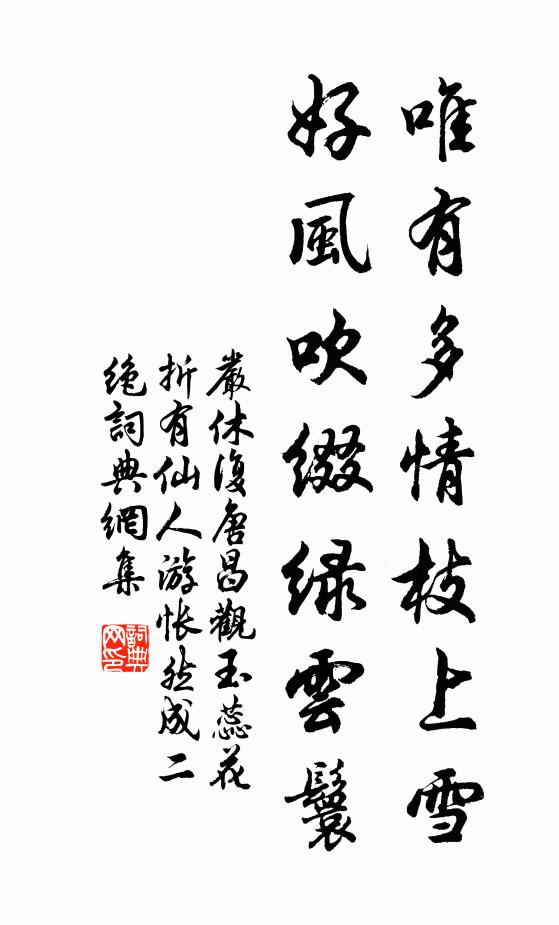 唯有多情枝上雪
好風吹綴綠雲鬟
嚴休復唐昌觀玉蕊花
折有仙人游悵然成二
絶詞典網集
詞典網印